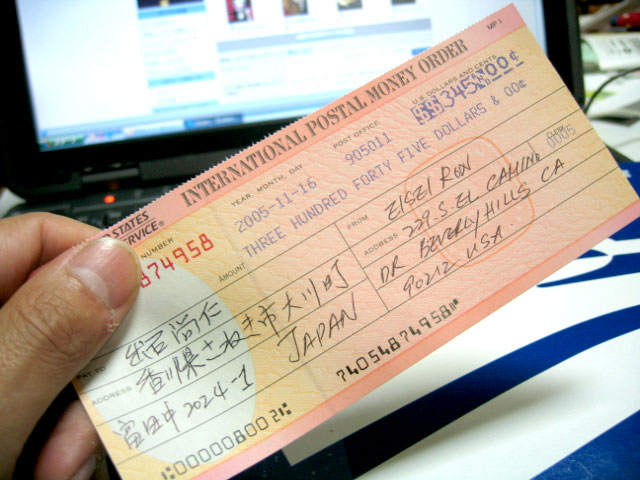 INTERNATIONAL POSTAL MONEY ORDER
MP 1
STATES
SERVICE®
NUMBER
874958
YEAR, MONTH, DAY
2005-11-16
POST OFFICE
905011
U.S. DOLLARS AND CENTS
$345.00¢
AMOUNT
THREE HUNDRED FORTY FIVE DOLLARS & 00¢
CLERK
0005
FROM
EISEI RON
ADDRESS
229.S.EL CAMINO
DR BEVERLY HILLS CA
90212 USA.
PAY TO
出石尚仁
ADDRESS
香川県さぬき市大川町
富田中2024-1
JAPAN
⑆00000800 2⑆
74054874958⑈